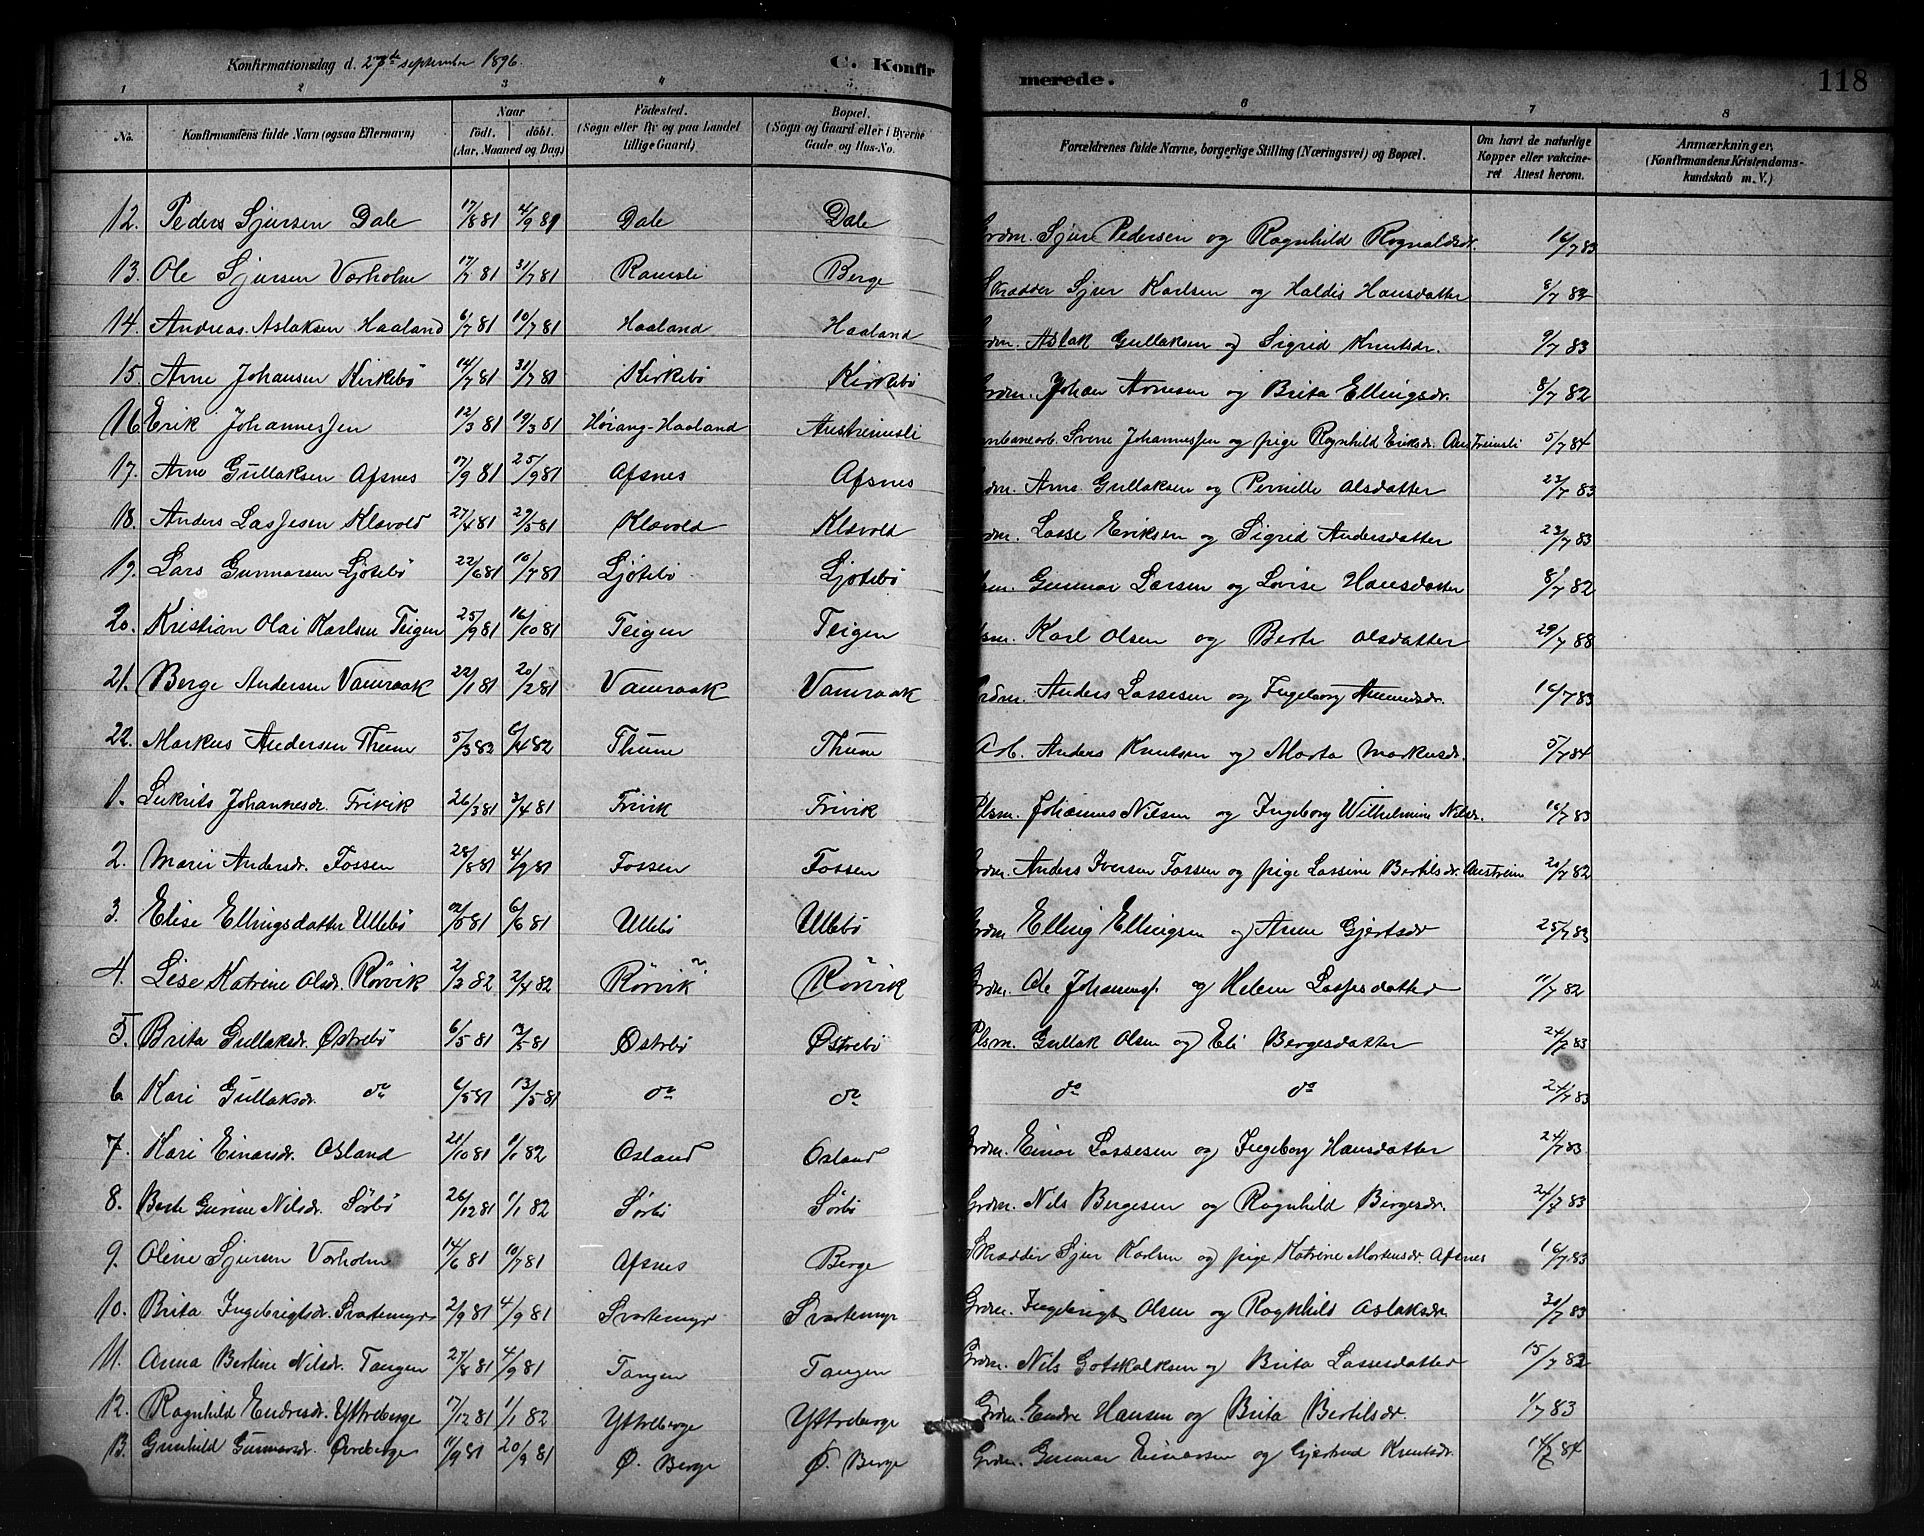 Konfirmationsdag d. 27de september 1896.
C. Konfir
merede.
118
1 2 3 4 5 6 7 8
No.
Konfirmandens fulde Navn (ogsaa Efternavn)
Naar
födt. döbt.
(Aar, Maaned og Dag)
Födested.
(Sogn eller By og paa Landet tillige Gaard)
Bopæl.
(Sogn og Gaard eller i Byerne Gade og Hus-No.
Forældrenes fulde Navne, borgerlige Stilling (Næringsvei) og Bopæl.
Om havt de naturlige Kopper eller vakcineret Attest herom.
Anmærkninger.
(Konfirmandens Kristendomskundskab m. V.)
12. Peders Sjursen Dale 17/8 81 4/9 81 Dale Dale Grdm. Sjur Pedersen og Ragnhild Rognaldsdr. 16/7 83
13. Ole Sjursen Varholm 17/7 81 31/7 81 Ramsli Berge Skrædder Sjur Karlsen og Haldis Hansdatter 8/7 82
14. Andreas Aslaksen Haaland 6/7 81 10/7 81 Haaland Haaland Grdm. Aslak Gullaksen og Sigrid Knutsdr. 9/7 83
15. Arne Johansen Kirkebö 14/7 81 31/7 81 Kirkebö Kirkebö Grdm. Johan Arnesen og Brita Ellingsdr. 8/7 82
16. Erik Johannessen 12/3 81 19/3 81 Høiang-Haaland Austreimsli Svene Johannessen og pige Ragnhild Eriksdr. Austreimsli 5/7 84
17. Arne Gullaksen Afsnes 17/9 81 25/9 81 Afsnes Afsnes Grdm. Arns. Gullaksen og Pernille Olsdatter 22/7 83
18. Anders Lassesen Klævold 27/4 81 29/5 81 Klævold Klævold Grdm. Lasse Eriksen og Sigrid Andersdatter 23/7 83
19. Lars Gunnarsen Ljötebö 22/6 81 10/7 81 Ljötebö Ljötebö Gunnar Larsen og Lovise Hansdatter 8/7 82
20. Kristian Olai Karlsen Teigen 25/9 81 16/10 81 Teigen Teigen Karl Olsen og Berte Olsdatter 29/7 88
21. Berge Andersen Vamraak 22/1 81 20/2 81 Vamraak Vamraak Grdm. Anders Lassesen og Ingeborg 16/7 83
22. Markus Andersen Thune 5/3 82 6/4 82 Thune Thune Arb. Anders Knutsen og Marta Markusdr. 5/7 84
1. Johannesdr. Trivik 26/3 81 3/4 81 Trivik Trivik Plsm. Johannes Nilsen og Ingeborg Wilhelmine Nilsdr. 16/7 83
2. Marie Andersdr. Fossen 28/8 81 4/9 81 Fossen Fossen Grdm. Anders Iversen Fossen og pige Lassine Bertilsdr. Austreim 20/7 82
3. Elise Ellingsdatter Ullebö /5 81 6/6 81 Ullebö Ullebö Grdm Elling Ellingsen og Anne Gjertsdr 25/7 83
4. Lise Katrine Olsdr. Rörvik 2/3 82 2/4 82 Rörvik Rörvik Grdm. Ole Johanness. og Helene Lassesdatter 11/7 82
5. Brita Gullaksdr. Østrebö 6/5 81 /5 81 Østrebö Østrebö Plsm. Gullak Olsen og Eli Bergesdatter 24/7 83
6. Kari Gullaksdr. do 6/5 81 13/5 81 do do do do 24/7 83
7. Kari Einarsdr. Osland 21/10 81 1/1 82 Osland Osland Grdm. Einar Lassesen og Ingeborg Hansdatter 24/7 83
8. Berte Gurine Nilsdr. Sörbö 26/12 81 1/1 82 Sörbö Sörbö Grdm. Nils Bergesen og Ragnhild Bergesdr. 24/7 83
9. Oline Sjursen Varholm 14/6 81 10/7 81 Afsnes Berge Skrædder Sjur Karlsen og pige Katrine Mortensdr. Afsnes 16/7 83
10. Brita Ingebrigtsdr. Svartemyr 2/9 81 4/9 81 Svartemyr Svartemyr Grdm. Ingebrigt Olsen og Ragnhild Aslaksdr. 30/7 83
11. Anna Bertine Nilsdr. Tangen 27/8 81 4/9 81 Tangen Tangen Grdm. Nils Gotskalksen og Brita Lassesdatter 15/7 82
12. Ragnhild Endresdr. Yttreberge 17/12 81 1/1 82 Yttreberge Yttreberge Grdm. Endre Hansen og Brita Bertilsdr. 1/7 83
13. Gunhild Gunnarsdr. Øvreberge 11/9 81 20/9 81 Ø. Berge Ø. Berge Grdm. Gunnar Einarsen og Gjertrud Knutsdr. 84